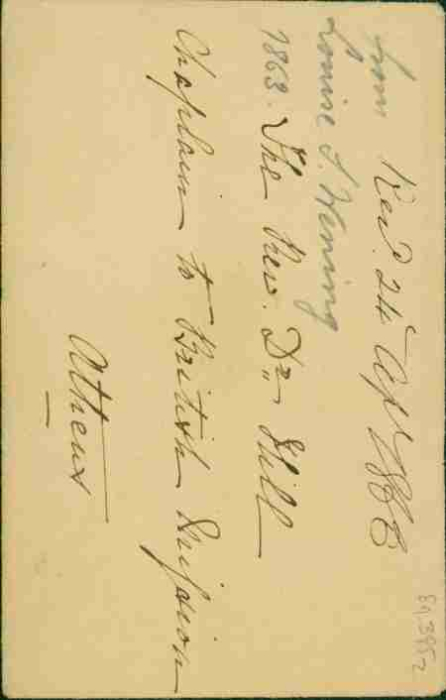 from Rec.d 24 Apl 1868
Louise S. Werning
1863. The Rev. Dr. Hill
Chaplain to British Mission
Athens